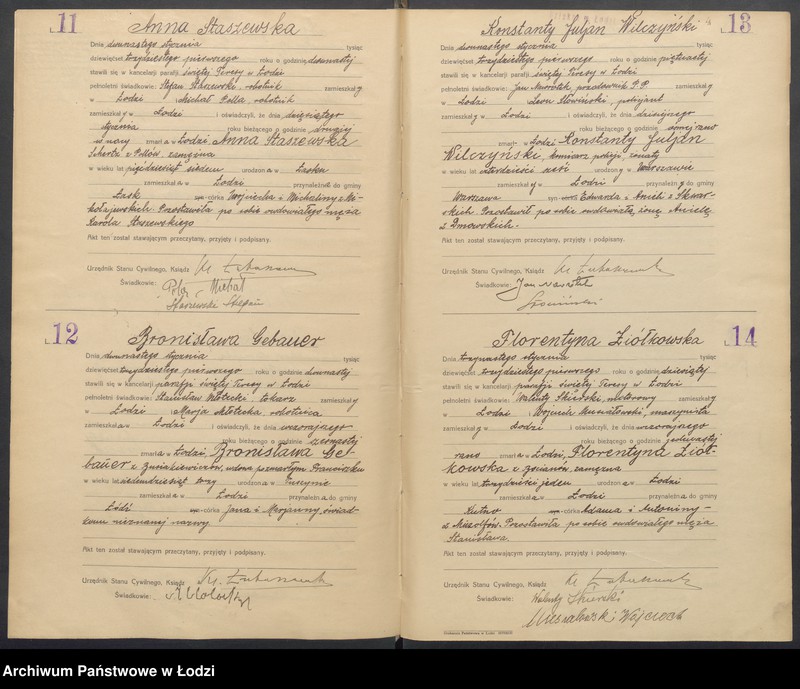 11
Anna Staszewska
Dnia dwunastego stycznia tysiąc
dziewięćset trzydziestego pierwszego roku o godzinie dwunastej
stawili się w kancelarji parafji świętej Teresy w Łodzi
pełnoletni świadkowie: Stefan Staszewski, robotnik zamieszkały
w Łodzi Michał Polla, robotnik
zamieszkały w Łodzi i oświadczyli, że dnia dziesiątego
stycznia roku bieżącego o godzinie drugiej
w nocy zmarła w Łodzi, Anna Staszewska
z Pollów, zamężna
w wieku lat pięćdziesiąt siedem urodzona w Łasku
zamieszkała w Łodzi przynależna do gminy
Łask córka Wojciecha i Michaliny z Mi-
kołajewskich. Pozostawiła po sobie owdowiałego męża
Karola Staszewskiego
Akt ten został stawającym przeczytany, przyjęty i podpisany.
Urzędnik Stanu Cywilnego, Ksiądz
Świadkowie: Michał
Staszewski Stefan
12
Bronisława Gebauer
Dnia dwunastego stycznia tysiąc
dziewięćset trzydziestego pierwszego roku o godzinie dwunastej
stawili się w kancelarji parafji świętej Teresy w Łodzi
pełnoletni świadkowie: Stanisław Młotecki, tokarz zamieszkały
w Łodzi Marja Młotecka, robotnica
zamieszkała w Łodzi i oświadczyli, że dnia wczorajszego
roku bieżącego o godzinie szesnastej
zmarła w Łodzi, Bronisława Ge-
bauer z wdowa po zmarłym Franciszku
w wieku lat siedemdziesiąt trzy urodzona w Tuszynie
zamieszkała w Łodzi przynależna do gminy
Łódź córka Jana i Marjanny, świad-
kom nieznanej nazwy
Akt ten został stawającym przeczytany, przyjęty i podpisany.
Urzędnik Stanu Cywilnego, Ksiądz
Świadkowie:
13
Konstanty Juljan Wilczyński
Dnia dwunastego stycznia tysiąc
dziewięćset trzydziestego pierwszego roku o godzinie piętnastej
stawili się w kancelarji parafji świętej Teresy w Łodzi
pełnoletni świadkowie: Jan Nawrotek, przodownik P.P. zamieszkały
w Łodzi Leon Słowiński, policjant
zamieszkały w Łodzi i oświadczyli, że dnia dzisiejszego
roku bieżącego o godzinie ósmej rano
zmarł w Łodzi Konstanty Juljan
Wilczyński, komisarz policji, żonaty
w wieku lat czterdzieści sześć urodzony w Warszawie
zamieszkały w Łodzi przynależny do gminy
Warszawa syn Edwarda i Anieli z Skwar-
skich. Pozostawił po sobie owdowiałą żonę Anielę
z Dmowskich.
Akt ten został stawającym przeczytany, przyjęty i podpisany.
Urzędnik Stanu Cywilnego, Ksiądz
Świadkowie: Jan Nawrotek
14
Florentyna Ziółkowska
Dnia trzynastego stycznia tysiąc
dziewięćset trzydziestego pierwszego roku o godzinie dziesiątej
stawili się w kancelarji parafji świętej Teresy w Łodzi
pełnoletni świadkowie: Walenty Skierski, zamieszkały
w Łodzi Wojciech Musiałowski, maszynista
zamieszkały w Łodzi i oświadczyli, że dnia wczorajszego
roku bieżącego o godzinie jedenastej
rano zmarła w Łodzi, Florentyna Ziół-
kowska z zamężna
w wieku lat trzydzieści jeden urodzona w Łodzi
zamieszkała w Łodzi przynależna do gminy
Kutno córka Adama i Antoniny
Pozostawiła po sobie owdowiałego męża
Stanisława.
Akt ten został stawającym przeczytany, przyjęty i podpisany.
Urzędnik Stanu Cywilnego, Ksiądz
Świadkowie: Walenty Skierski
Musiałowski Wojciech
Archiwum Państwowe w Łodzi